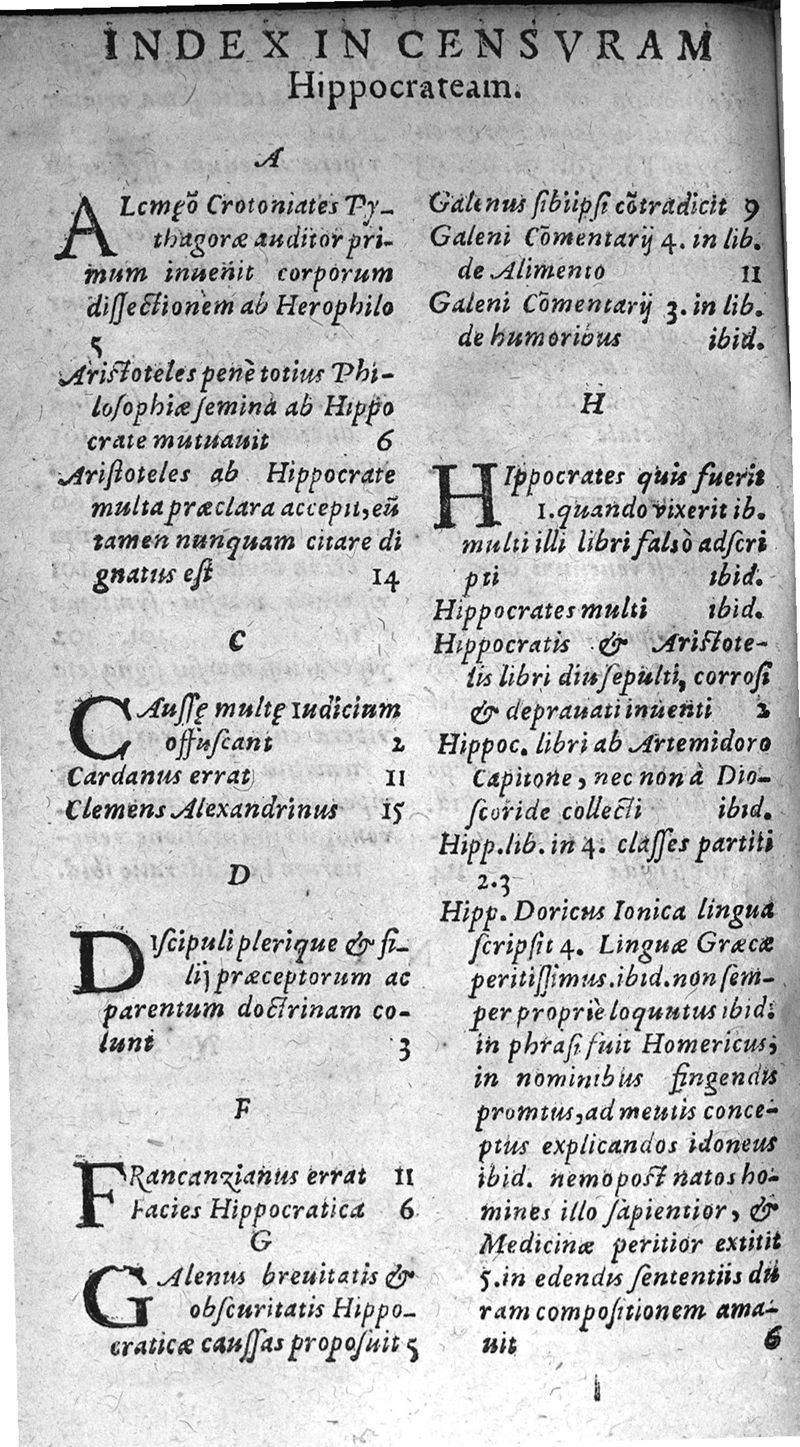 INDEX IN CENSVRAM
Hippocrateam.
A
ALcmęõ Crotoniates Py-
thagoræ auditor pri-
mum inuenit corporum
dissectionem ab Herophilo
5
Aristoteles penè totius Phi-
losophiæ semina ab Hippo
crate mutuauit 6
Aristoteles ab Hippocrate
multa præclara accepit, eũ
tamen nunquam citare di
gnatus est 14
C
CAussę multę iudicium
offuscant 2
Cardanus errat 11
Clemens Alexandrinus 15
D
Discipuli plerique & fi-
lij præceptorum ac
parentum doctrinam co-
lunt 3
F
FRancanzianus errat 11
Facies Hippocratica 6
G
GAlenus breuitatis &
obscuritatis Hippo-
craticæ caussas proposuit 5
Galenus sibiipsi cõtradicit 9
Galeni Cõmentarij 4. in lib.
de Alimento 11
Galeni Cõmentarij 3. in lib.
de humoribus ibid.
H
HIppocrates quis fuerit
1. quando vixerit ib.
multi illi libri falsò adscri
pti ibid.
Hippocrates multi ibid.
Hippocratis & Aristote-
lis libri diu sepulti, corrosi
& deprauati inuenti 2
Hippoc. libri ab Artemidoro
Capitone, nec non à Dio-
scoride collecti ibid.
Hipp. lib. in 4. classes partiti
2.3
Hipp. Doricus Ionica lingua
scripsit 4. Linguæ Græcæ
peritissimus. ibid. non sem-
per propriè loquutus ibid.
in phrasi fuit Homericus,
in nominibus fingendis
promtus, ad mentis conce-
ptus explicandos idoneus
ibid. nemo post natos ho-
mines illo sapientior, &
Medicinæ peritior extitit
5. in edendis sententiis du
ram compositionem ama-
uit 6